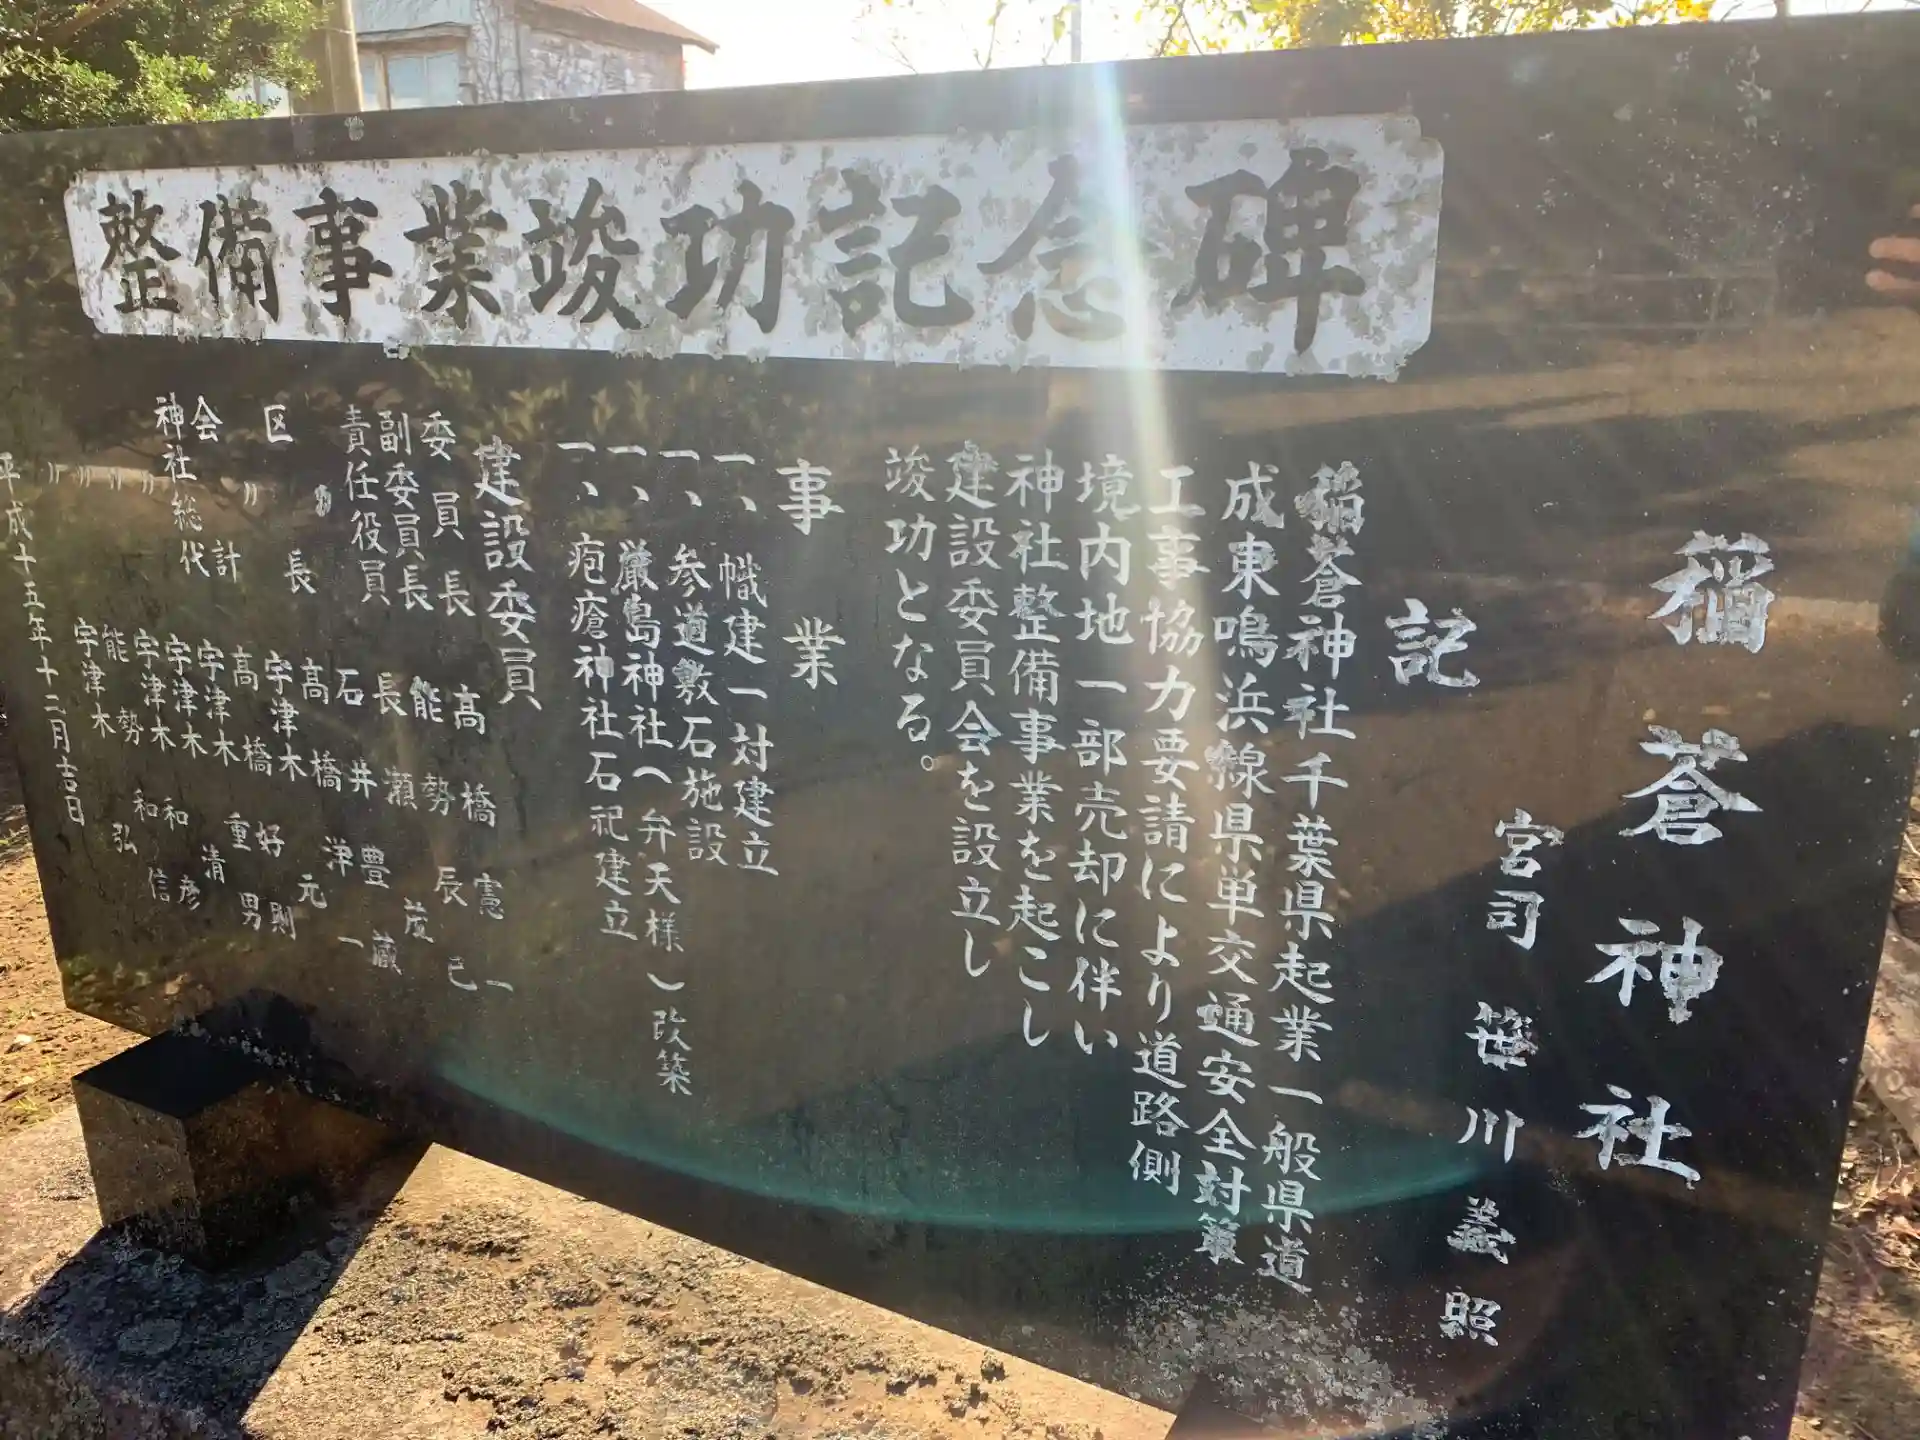 整備事業竣功記念碑
稲蒼神社
宮司 笹川義照
記
稲蒼神社千葉県起業一般県道
成東鳴浜線県単交通安全対策
工事協力要請により道路側
境内地一部売却に伴い
神社整備事業を起こし
建設委員会を設立し
竣功となる。
事業
一、幟建一対建立
一、参道敷石施設
一、厳島神社(弁天様)改築
一、疱瘡神社石祀建立
建設委員
委員長 高橋憲一
副委員長 能勢辰巳
責任役員 長瀬茂
〃 石井豊蔵
区長 高橋浄一
〃 宇津木元
会計 高橋好則
神社総代 宇津木重男
〃 宇津木清
〃 宇津木和彦
〃 能勢和信
〃 宇津木弘
平成十五年十二月吉日